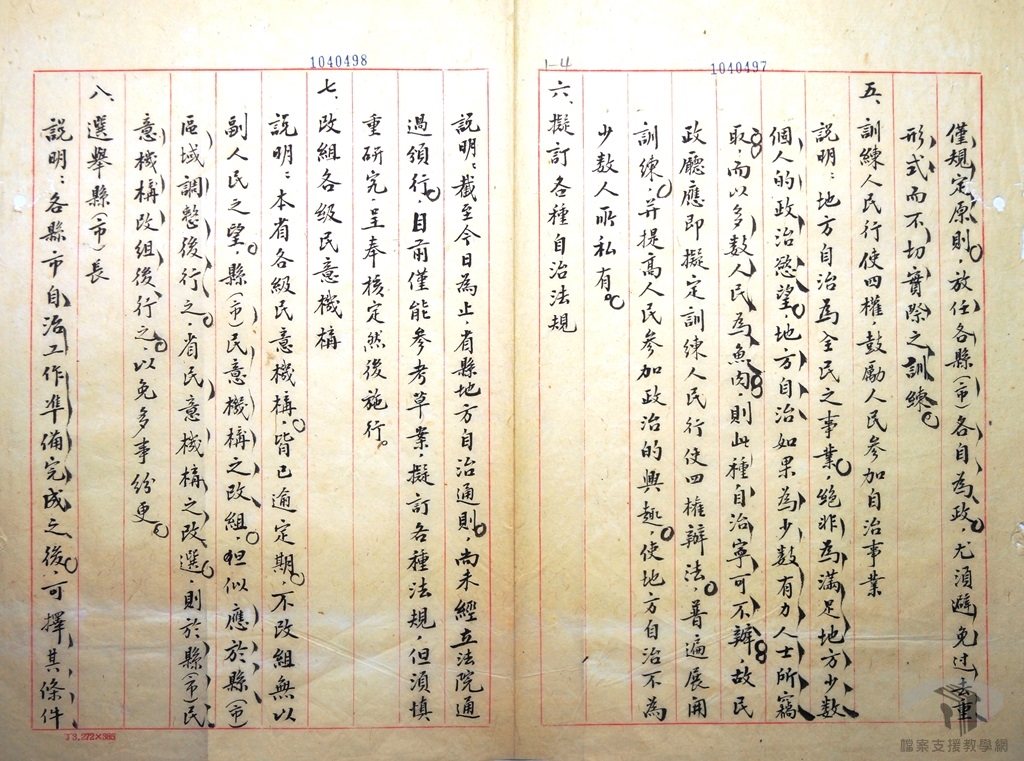 1040497
1-4
僅規定原則，放任各縣（市）各自為政，尤須避免過去重
形式而不切實際之訓練。
五、訓練人民行使四權，鼓勵人民參加自治事業
說明：地方自治為全民之事業，絕非為滿足地方少數
個人的政治慾望，地方自治如果為少數有力人士所竊
取，而以多數人民為魚肉，則此種自治寧可不辦，故民
政廳應即擬定訓練人民行使四權辦法，普遍展開
訓練，并提高人民參加政治的興趣，使地方自治不為
少數人所私有。
六、擬訂各種自治法規
1040498
說明：截至今日為止，省縣地方自治通則，尚未經立法院通
過頒行，目前僅能參考草案，擬訂各種法規，但須慎
重研究，呈奉核定然後施行。
七、改組各級民意機構
說明：本省各級民意機構，皆已逾定期，不改組無以
副人民之望，縣（市）民意機構之改組，但似應於縣（市）
區域調整後行之，省民意機構之改選，則於縣（市）民
意機構改組後行之，以免多事紛更。
八、選舉縣（市）長
說明：各縣市自治工作準備完成之後，可擇其條件
73.272×385
檔案支援教學網